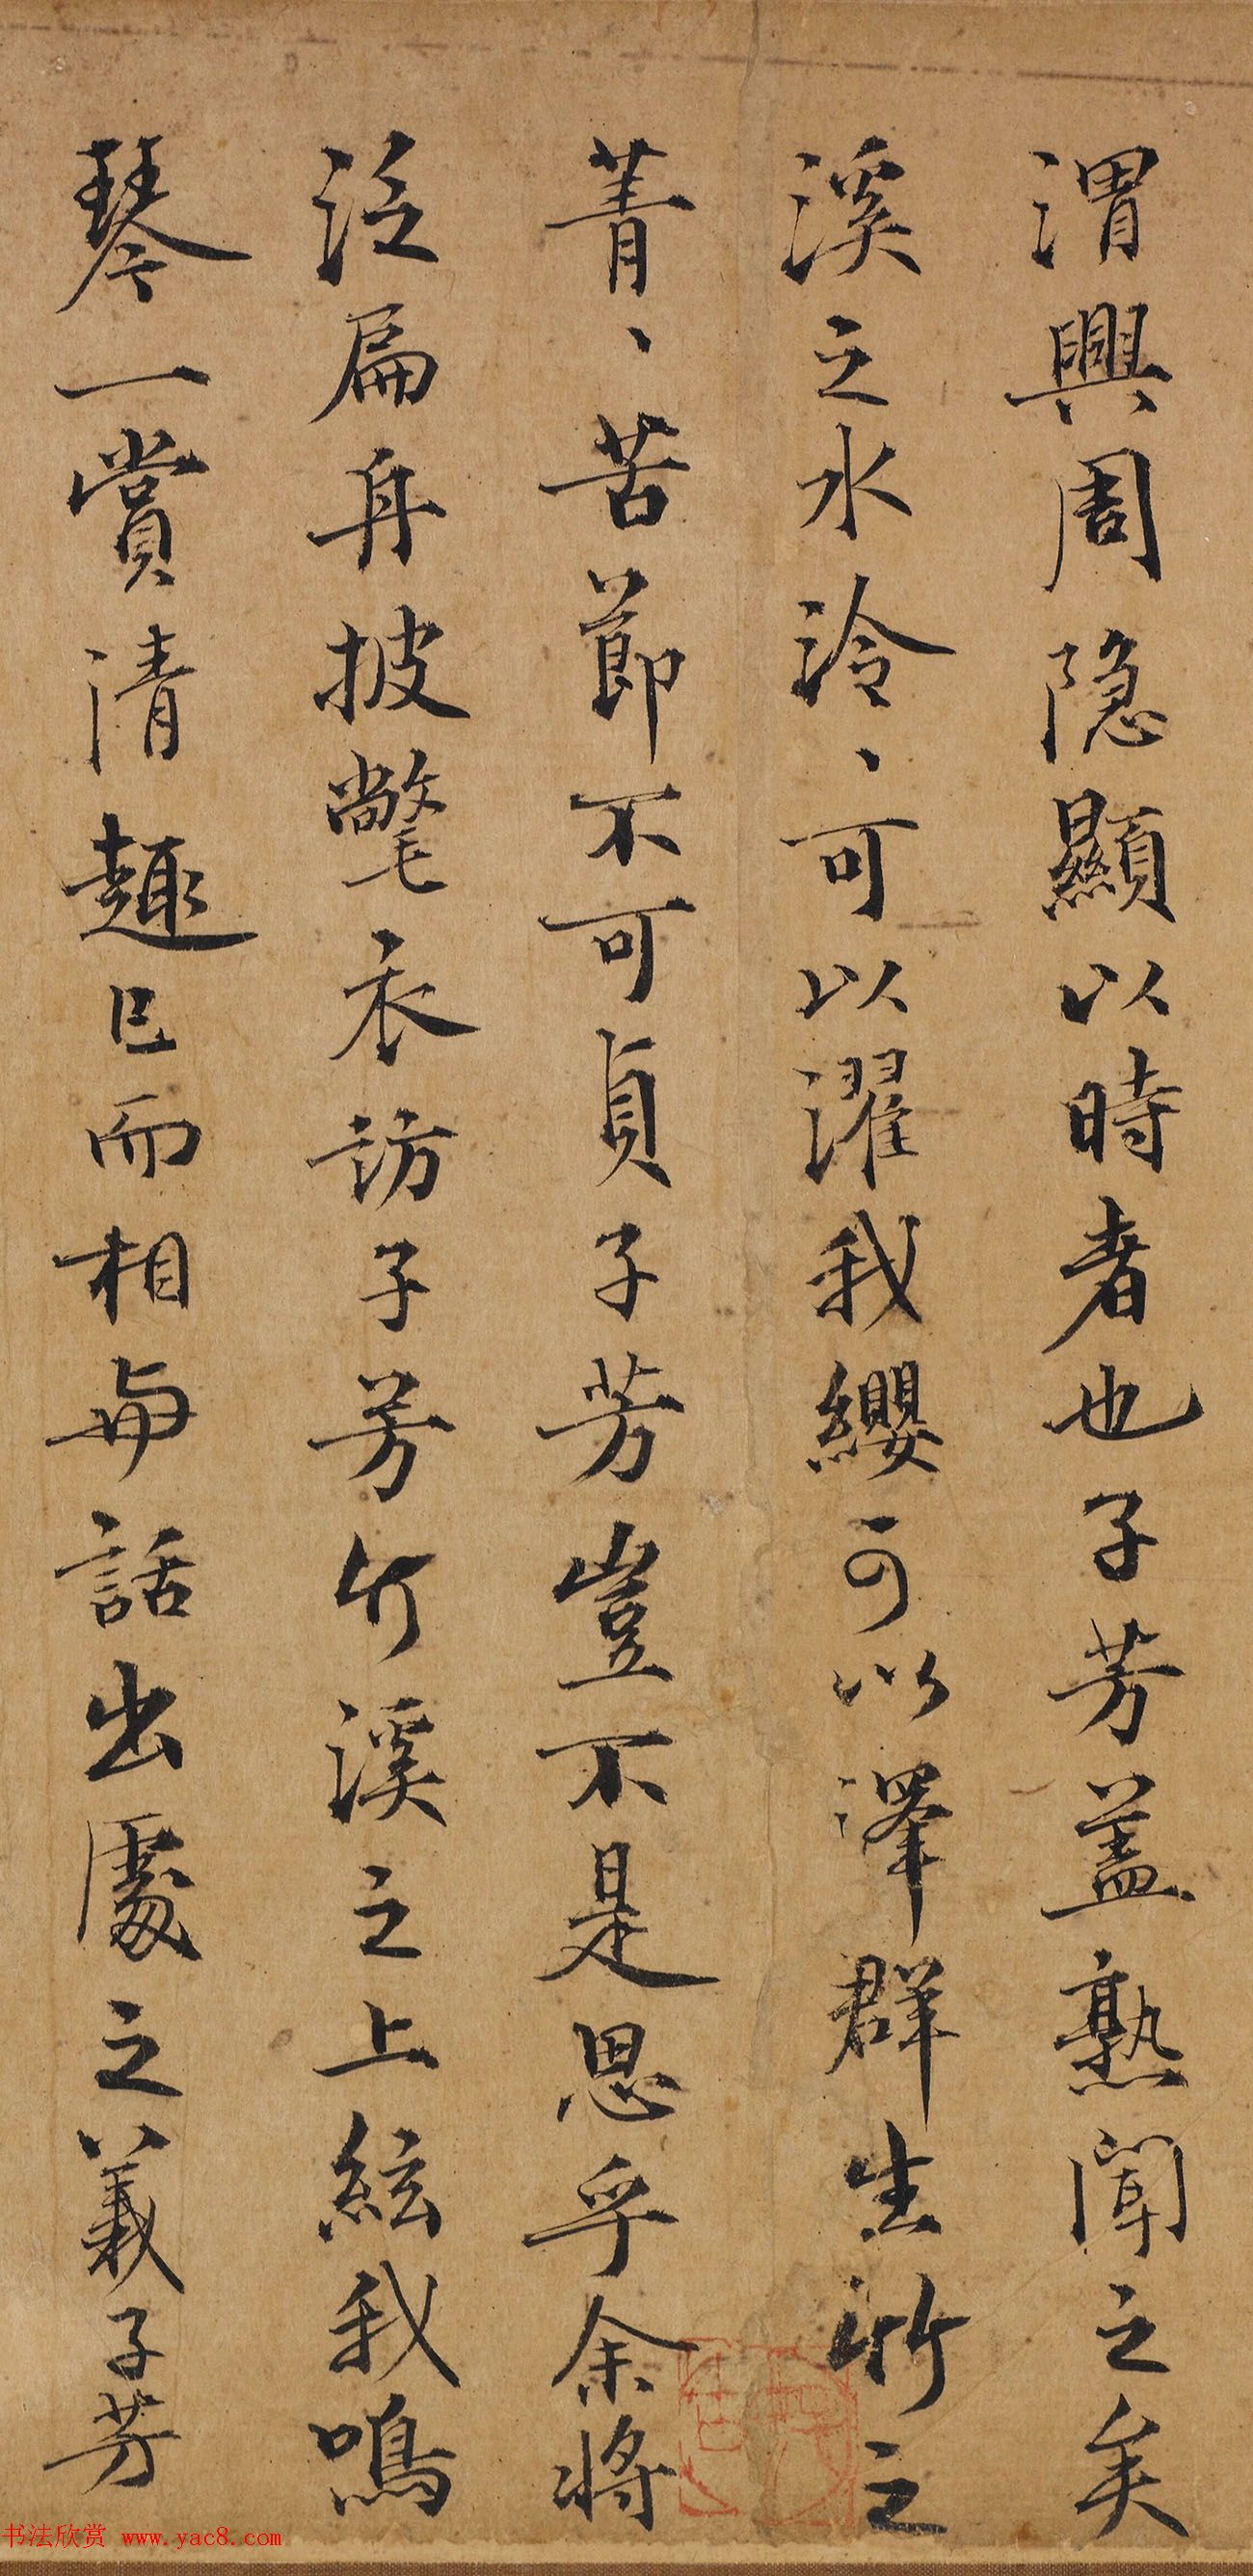 渭興周隐顯以時者也子芳葢熟聞之矣
溪之水泠、可以濯我纓可以澤群生竹之
菁、苦節不可貞子芳豈不是思乎余將
泛扁舟披氅衣訪子芳竹溪之上絃我鳴
琴一賞清趣已而相與話出處之義子芳
书法欣赏 www.yac8.com